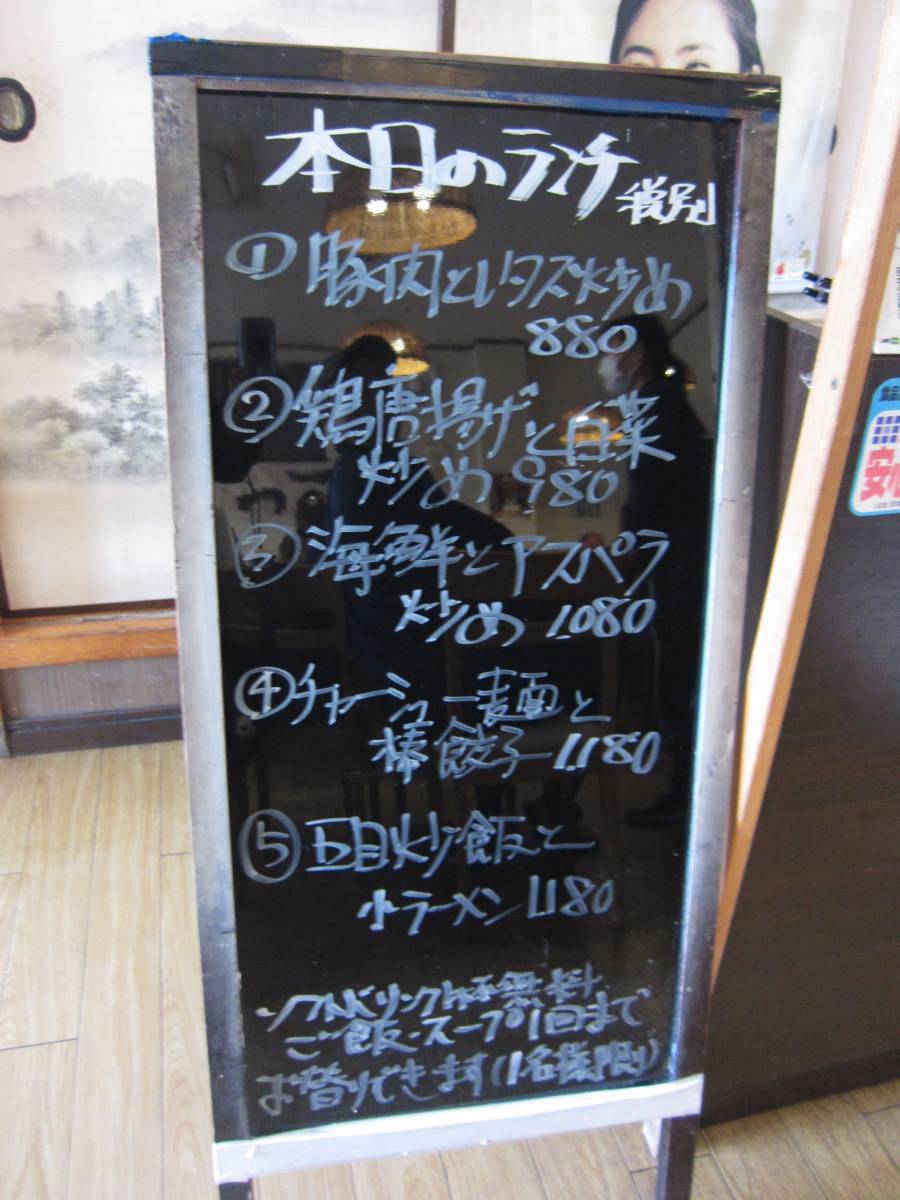 本日のランチ 税別
① 豚肉とレタス炒め
880
② 鶏唐揚げと白菜
炒め 980
③ 海鮮とアスパラ
炒め 1080
④ チャーシュー麺と
棒餃子 1180
⑤ 五目炒飯と
小ラーメン 1180
ソフトドリンク1杯無料
ご飯・スープ1回まで
お替りできます(1名様限り)
安心